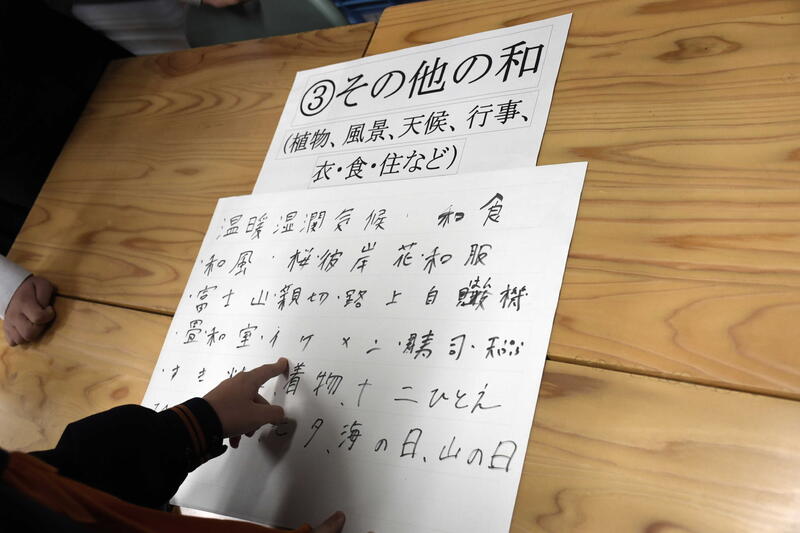 ③その他の和
(植物、風景、天候、行事、
衣・食・住など)
温暖湿潤気候・和食
・和風・桜・彼岸花・和服
・富士山・親切・路上自販機
・畳・和室・イケメン・寿司
・すき、着物、十二ひとえ
七夕、海の日、山の日